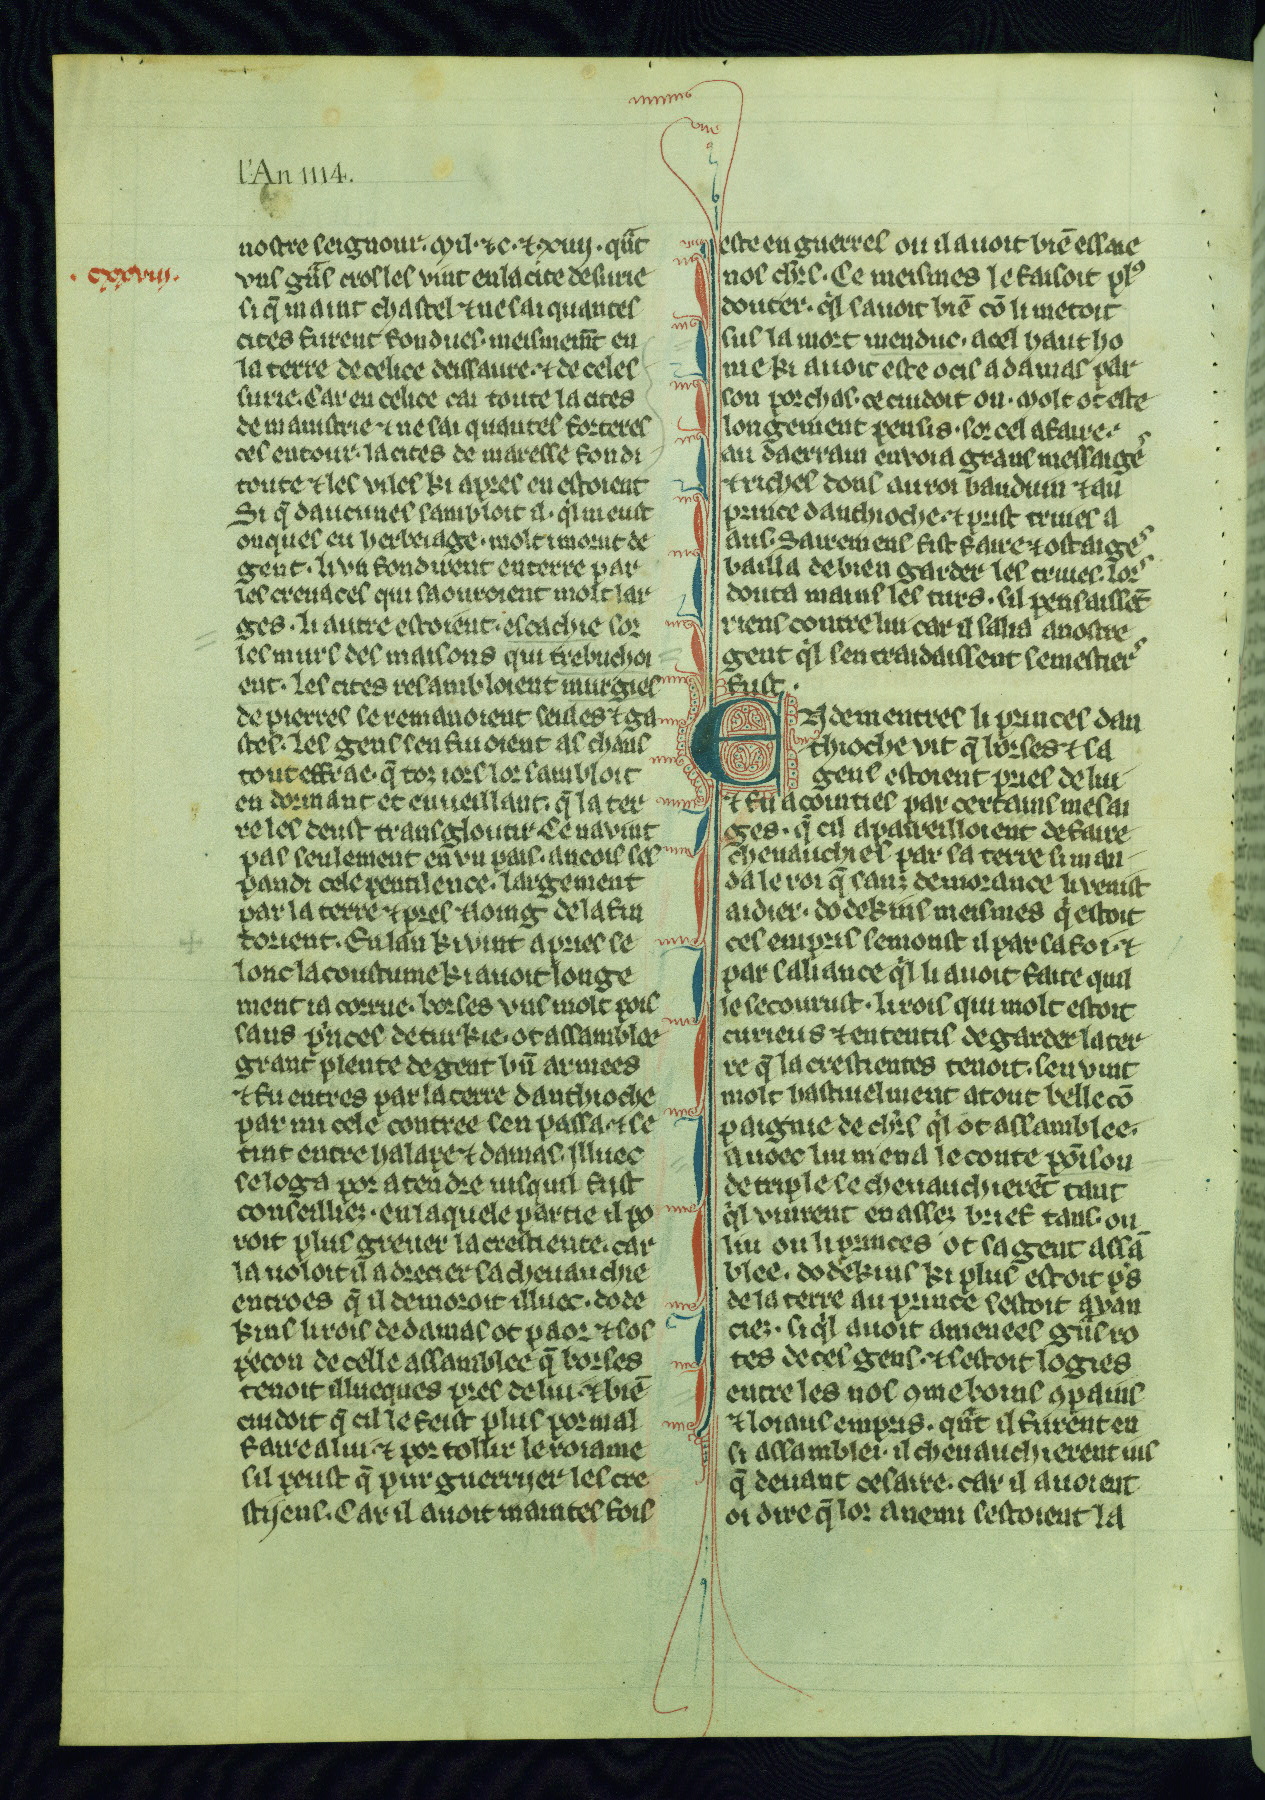 l'An 1114.
nostre seignour. mil. ⁊ c. ⁊ xiiij. q̄nt
.cxxviij.
vns gñs crosles vint en la cite de surie
si q̄ maint chastel ⁊ ne sai quantes
cites furent fondues. meismem̄t en
la terre de celice deissaure. ⁊ de celes
surie. Car en celice cai toute la cites
de mamistrie ⁊ ne sai quantes forteres
ces entour. la cites de maresse fondi
toute ⁊ les viles ki apres en estoient
Si q̄ daucunes sambloit il. q̄l ni eust
onques eu herbeiage. molt i morut de
gent. li vn fondirent en terre par
les creuaces qui saouroient molt lar
ges. li autre estoient. escachie sor
les murs des maisons qui trebuchoi
ent. les cites resambloient murgies
de pierres se remanoient seules ⁊ ga
stes. les gens sen fuioient as chans
tout effrae. q̄ tor iors lor sambloit
en dormant et en ueillant. q̄ la ter
re les deust transgloutir. Ce nauint
pas seulement en vn pais. ancois ses
pandi cele pentilence. largement
par la terre ⁊ pres ⁊ loing de la fin
torient. En lan ki vint apries se
lonc la coustume ki auoit longe
ment ia corrue. borses vns molt pois
sans p̄nces de turkie. ot assamblee
grant plente de gent bn̄ armees
⁊ fu entres par la terre danthioche
par mi cele contree sen passa. ⁊ se
tint entre halape ⁊ damas. illuec
se loga por atendre iusquil fust
conseillies. en laquele partie il po
roit plus greuer la crestiente. car
la uoloit il adrecier sa cheuauchie
entroes q̄ il demoroit illuec. dode
kins li rois de damas ot paor ⁊ sos
pecon de celle assamblee q̄ borses
tenoit illueques pres de lui. ⁊ biē
cuidoit q̄ cil le feist plus por mal
faire a lui. ⁊ por tollir le roiame
sil peust q̄ pur guerryer les cre
stijens. Car il auoit maintes fois
este en guerres ou il auoit biē essaie
nos chr̄s. Ce meismes le faisoit plꝰ
douter. q̄l sauoit biē cō li metoit
sus la mort menduc. a cel haut ho
me ki auoit este ocis a damas par
son porchas. ce cuidoit on. molt ot este
longement pensis. sor cel afaire.
au daerrain enuoia grans messaiges
⁊ riches dons au roi bauduin ⁊ au
prince danthioche. ⁊ prist triues a
aus. Sairemens fist faire ⁊ ostaiges
bailla de bien garder les triues. lors
douta mains les turs. sil pensaissēt
riens contre lui car il salia a nostre
gent q̄l sen traidaissent se mestiers
fust.
Endementres li princes dan
thioche vit q̄ borses ⁊ sa
gens estoient pries de lui
⁊ fu acointies par certains mesai
ges. q̄ cil apareilloient de faire
cheuauchies par sa terre si man
da le roi q̄ sanz demorance li venist
aidier. dodekins meismes q̄ estoit
ces empris semonst il par sa foi. ⁊
par saliance q̄l li auoit faite quil
le secourust. li rois qui molt estoit
curieus ⁊ ententis de garder la ter
re q̄ la crestientes tenoit. sen vint
molt hastiuelment atout belle cō
paignie de chr̄s q̄l ot assamblee.
Auoec lui mena le conte pōisou
de triple se cheuauchierēt tant
q̄l vinrent en asses brief tans. ou
liu ou li princes ot sa gent assā
blee. dodekins ki plus estoit p̄s
de la terre au prince sestoit auan
cies. si q̄l auoit amenees gn̄s ro
tes de ces gens. ⁊ sestoit logies
entre les nos ꝯme boins ꝯpains
⁊ loiaus empris. q̄nt il furent en
si assamblei. il cheuauchierent ius
q̄ deuant cesaire. car il auoient
oi dire q̄ lor anemi sestoient la